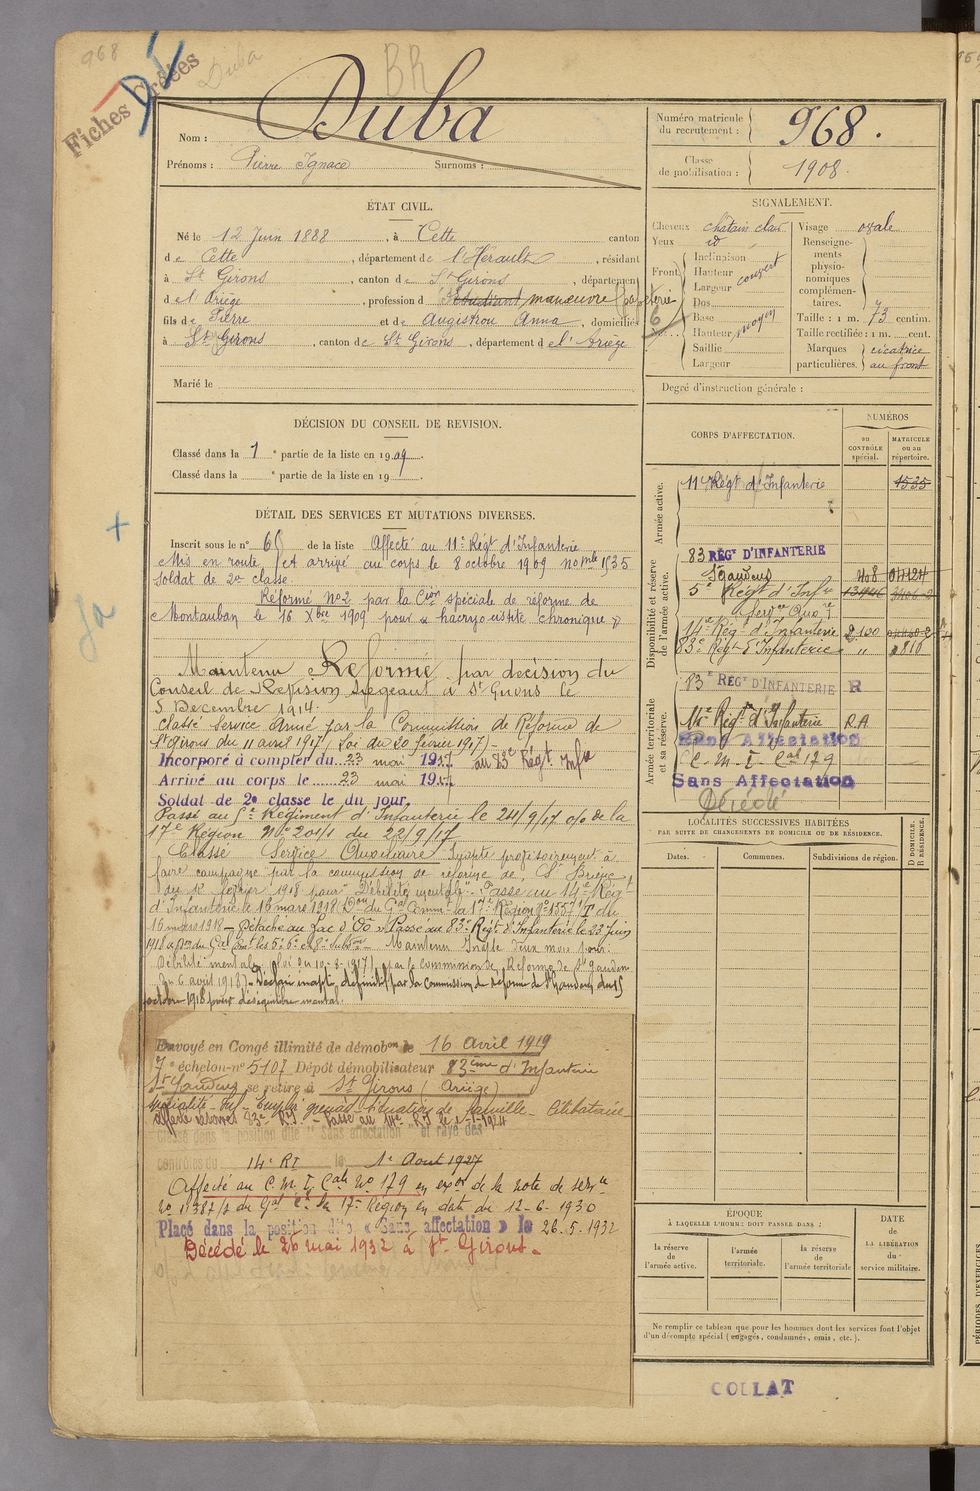 968
Fiches créées
Duba
BR
Nom : Duba
Prénoms : Pierre Ignace Surnoms :
Numéro matricule du recrutement : 968.
Classe de mobilisation : 1908.
ÉTAT CIVIL.
Né le 12 Juin 1888, à Cette canton
de Cette, département de l'Hérault, résidant
à St Girons, canton de St Girons, département
de l'Ariège, profession d'étudiant manœuvre papeterie
fils de Pierre et de Augistrou Anna, domiciliés
à St Girons, canton de St Girons, département de l'Ariège
Marié le
SIGNALEMENT.
Cheveux châtain clair
Yeux id
Front
Inclinaison
Hauteur
Largeur
couvert
Dos
Base
Hauteur
moyen
Saillie
Largeur
Visage ovale
Renseignements physionomiques complémentaires.
Taille : 1 m. 73 centim.
Taille rectifiée : 1 m. cent.
Marques particulières. cicatrice au front
Degré d'instruction générale :
DÉCISION DU CONSEIL DE REVISION.
Classé dans la 1e partie de la liste en 1909.
Classé dans la e partie de la liste en 19 .
DÉTAIL DES SERVICES ET MUTATIONS DIVERSES.
Inscrit sous le n° 60 de la liste Affecté au 11e Régt d'Infanterie
Mis en route et arrivé au corps le 8 octobre 1909 no mle 1535
Soldat de 2e classe.
Réformé No2 par la Cion spéciale de réforme de
Montauban le 16 Xbre 1909 pour « dacryo-cistite chronique »
Maintenu Réformé par décision du
Conseil de Révision siégeant à St Girons le
5 Décembre 1914.
Classé Service Armé par la Commission de Réforme de
St Girons du 11 avril 1917 (Loi du 20 février 1917) -
Incorporé à compter du 23 mai 1917 au 83e Régt Infie
Arrivé au corps le 23 mai 1917
Soldat de 2e classe le du jour.
Passé au 5e Régiment d'Infanterie le 24/9/17 o/o de la
17e Région No 201/1 du 22/9/17
Classé Service Auxiliaire Inapte provisoirement à
faire campagne par la commission de réforme de St Brieuc
du 12 février 1918 pour "Débilité mentale". Passé au 14e Régt
d'Infanterie le 16 mars 1918 (Don du Gal Commt la 17e Région No 1557/T du
16 mars 1918 - Détaché au Parc d'. Passé au 83e Régt d'Infanterie le 23 juin
1918 Maintenu Inapte deux mois pour :
Débilité mentale (Loi du 10-8-1917) par la commission de Réforme de St Gaudens
du 6 avril 1918). Déclaré inapte définitif par la commission de réforme de St Gaudens du 15
octobre 1918 pour déséquilibre mental.
Envoyé en Congé illimité de démobon le 16 Avril 1919
7e échelon-n° 5107 Dépôt démobilisateur 83ème d'Infanterie
St Gaudens se retire à St Girons (Ariège)
Spécialité - Emploi Situation de famille - Célibataire
Affecté réserve 83e R.I. - Passé au 14e R.I le 1-1-1924
Classé dans la position dite "sans affectation" et rayé des
contrôles du 14e RI le 1er Août 1927
Affecté au C.M.I. Cal No 179 en exon de la note de service
No 11387/1 du Gal Ct la 17e Région en date du 12-6-1930
Placé dans la position dite « Sans affectation » le 26.5.1932
Décédé le 26 mai 1932 à St Girons.
CORPS D'AFFECTATION.
NUMÉROS
AU CONTRÔLE spécial.
MATRICULE ou au répertoire.
Armée active.
11e Régt d'Infanterie 1535
Disponibilité et réserve de l'armée active.
83 RÉGt D'INFANTERIE
St Gaudens 408
5e Régt d'Infie
Servce Auxre
14e Régt d'Infanterie 2100
83e Régt d'Infanterie " 810
Armée territoriale et sa réserve.
83e RÉGt D'INFANTERIE R
14e Régt d'Infanterie R.A
Sans Affectation
C.M.I. Cal 179
Sans Affectation
Décédé
LOCALITÉS SUCCESSIVES HABITÉES
PAR SUITE DE CHANGEMENTS DE DOMICILE OU DE RÉSIDENCE.
D DOMICILE.
R RÉSIDENCE.
Dates.
Communes.
Subdivisions de région.
ÉPOQUE
À LAQUELLE L'HOMME DOIT PASSER DANS :
DATE
DE
LA LIBÉRATION
du
service militaire.
la réserve de l'armée active.
l'armée territoriale.
la réserve de l'armée territoriale
Ne remplir ce tableau que pour les hommes dont les services font l'objet
d'un décompte spécial (engagés, condamnés, omis, etc.).
COLLAT